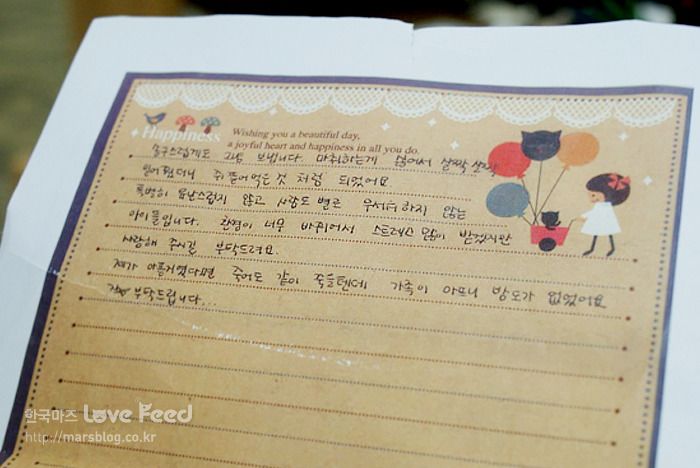 Happiness
Wishing you a beautiful day,
a joyful heart and happiness in all you do.
송구스럽게도 그냥 보냅니다 마취하는게 싫어서 살짝 살짝
밀어줬더니 쥐 뜯어먹은것 처럼 되었어요
특별히 유난스럽지 않고 사람도 별로 무서워하지 않는
아이들입니다. 환경이 너무 바뀌어서 스트레스 많이 받겠지만
사랑해 주시길 부탁드려요.
제가 아픈거였다면 죽어도 같이 죽을텐데 가족이 아프니 방도가 없었어요
부탁드립니다...
한국마즈 Love Feed
http://marsblog.co.kr